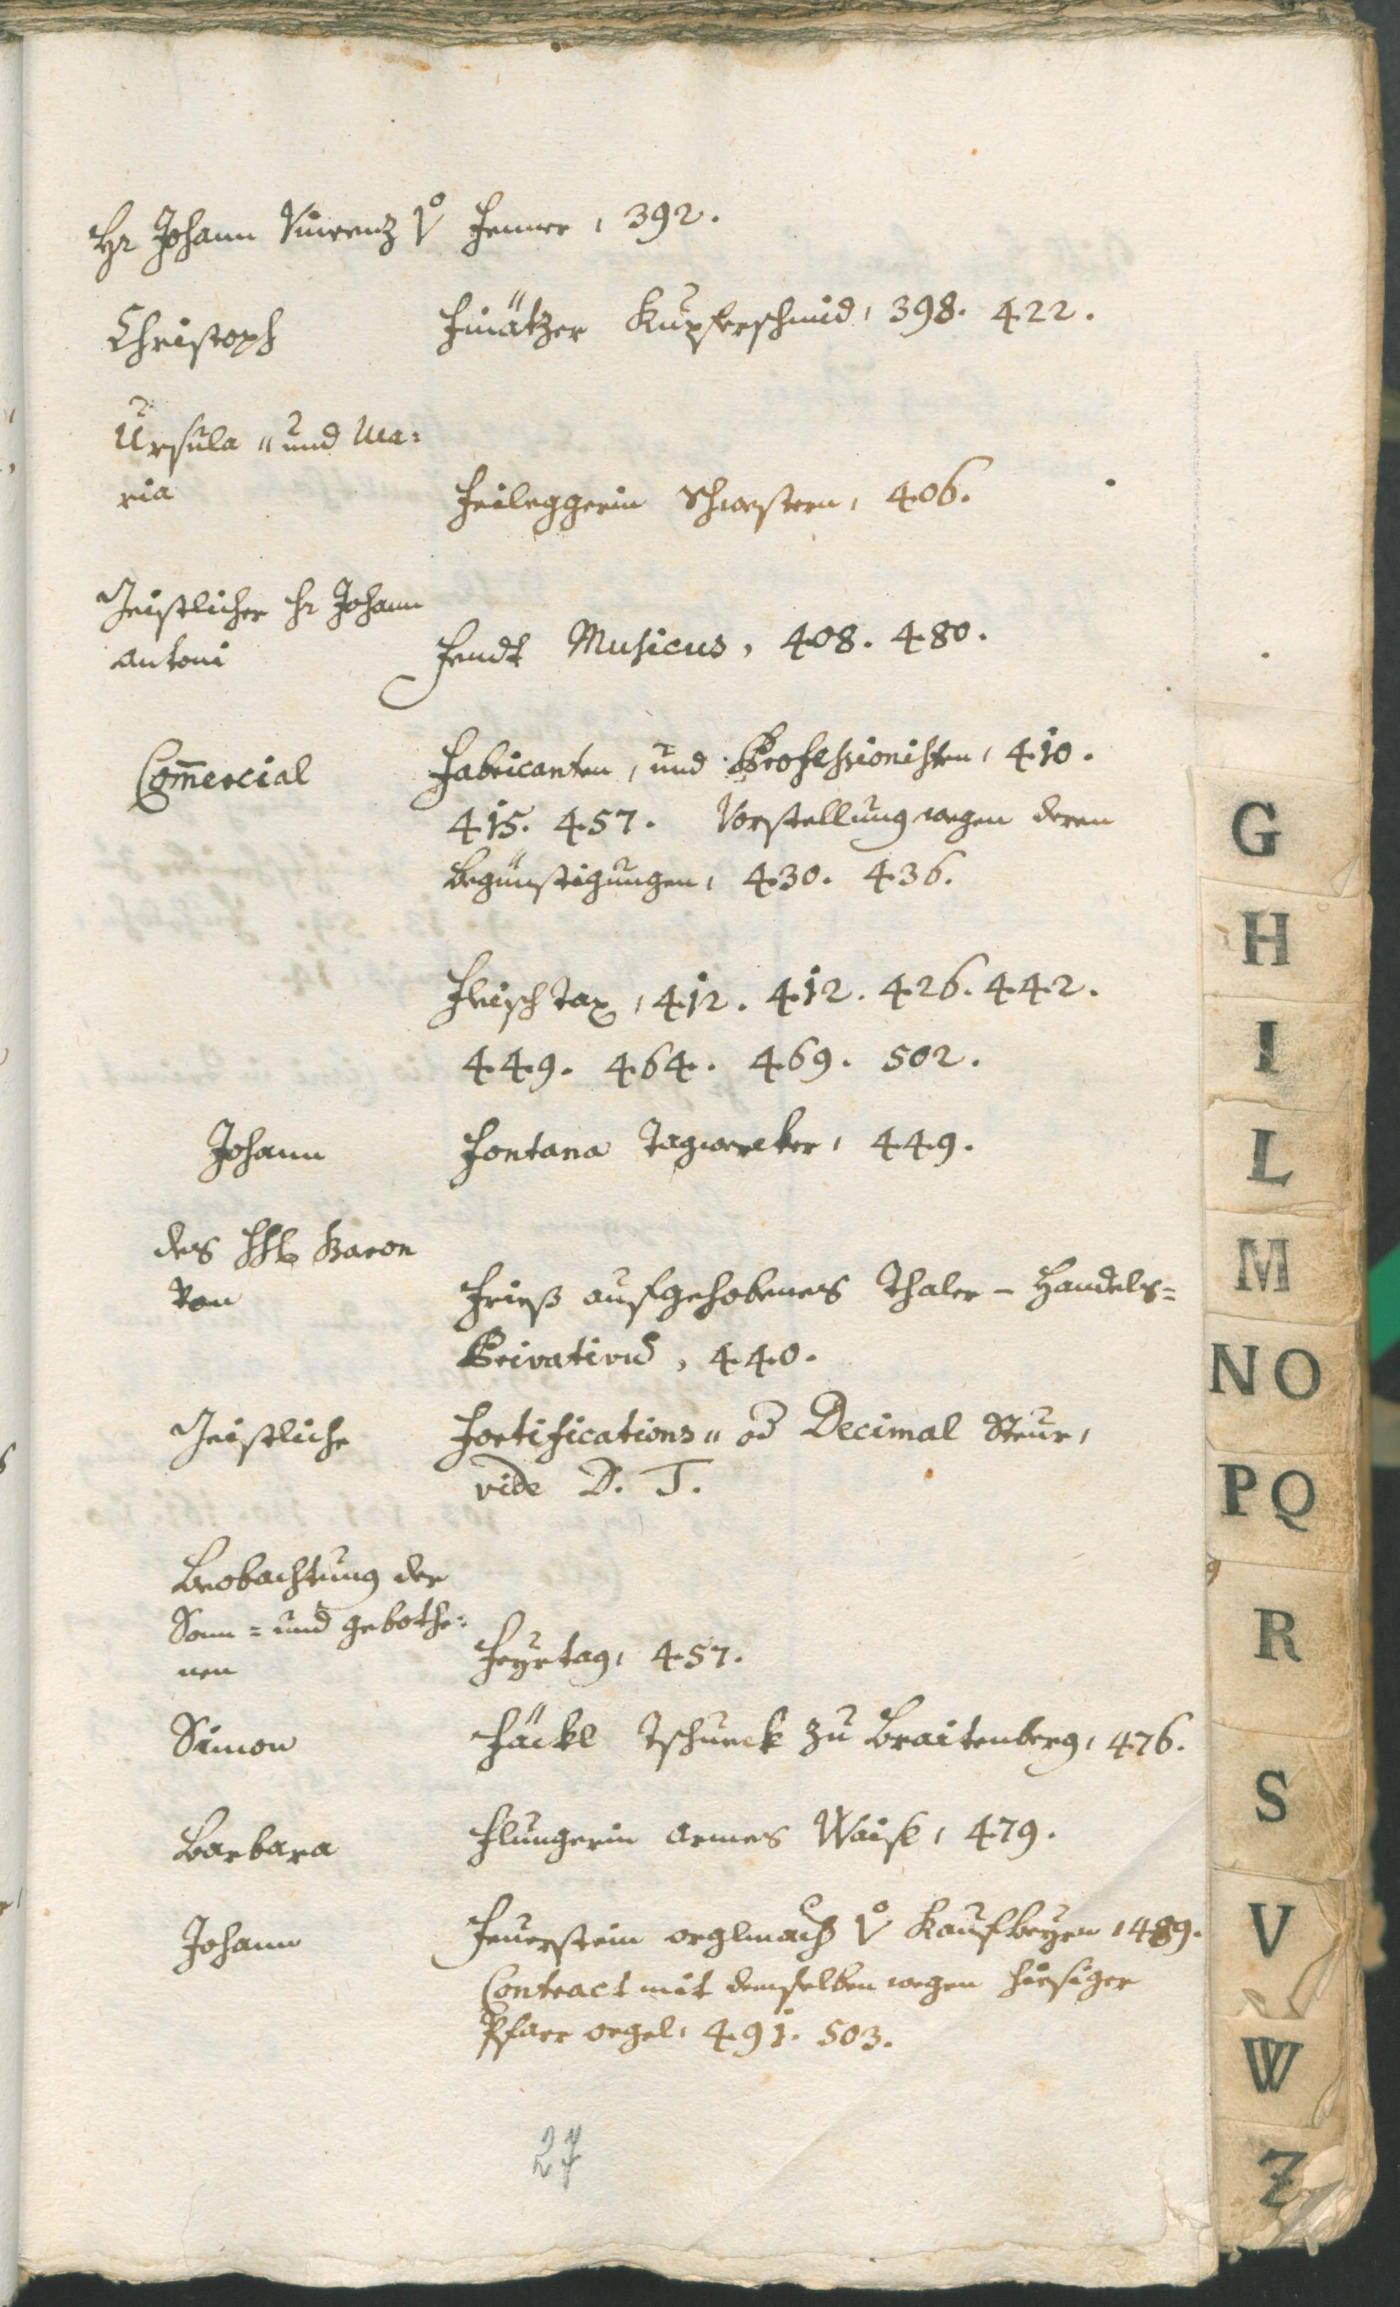 Hr Johann Vincenz v Fenner, 392.
Christoph Finätzer Kupferschmid, 398. 422.
Ursula- und Ma=
ria Feileggerin Schwestern, 406.
Geistlicher Hr Johann
Antoni Fendt Musicus, 408. 480.
Com̄ercial Fabricanten, und Professionisten, 410.
415. 457. Vorstellung wegen deren
Begünstigungen, 430. 436.
Fleisch Tax, 412. 412. 426. 442.
449. 464. 469. 502.
Johann Fontana Tagwercker, 449.
des Baron
von Frieß aufgehobenes Thaler- Handels=
Privativum, 440.
Geistliche Fortifications- od Decimal Steur,
vide D. T.
Beobachtung der
Sonn= und gebothe=
nen Feyrtag, 457.
Simon Fäckl Tschurck zu Braitenberg, 476.
Barbara Flungerin armes Waisl, 479.
Johann Feuerstein orglmach v Kaufbeyrn, 489.
Contract mit demselben wegen hiesiger
Pfarr orgel, 491. 503.
27
G
H
I
L
M
NO
PQ
R
S
V
W
Z